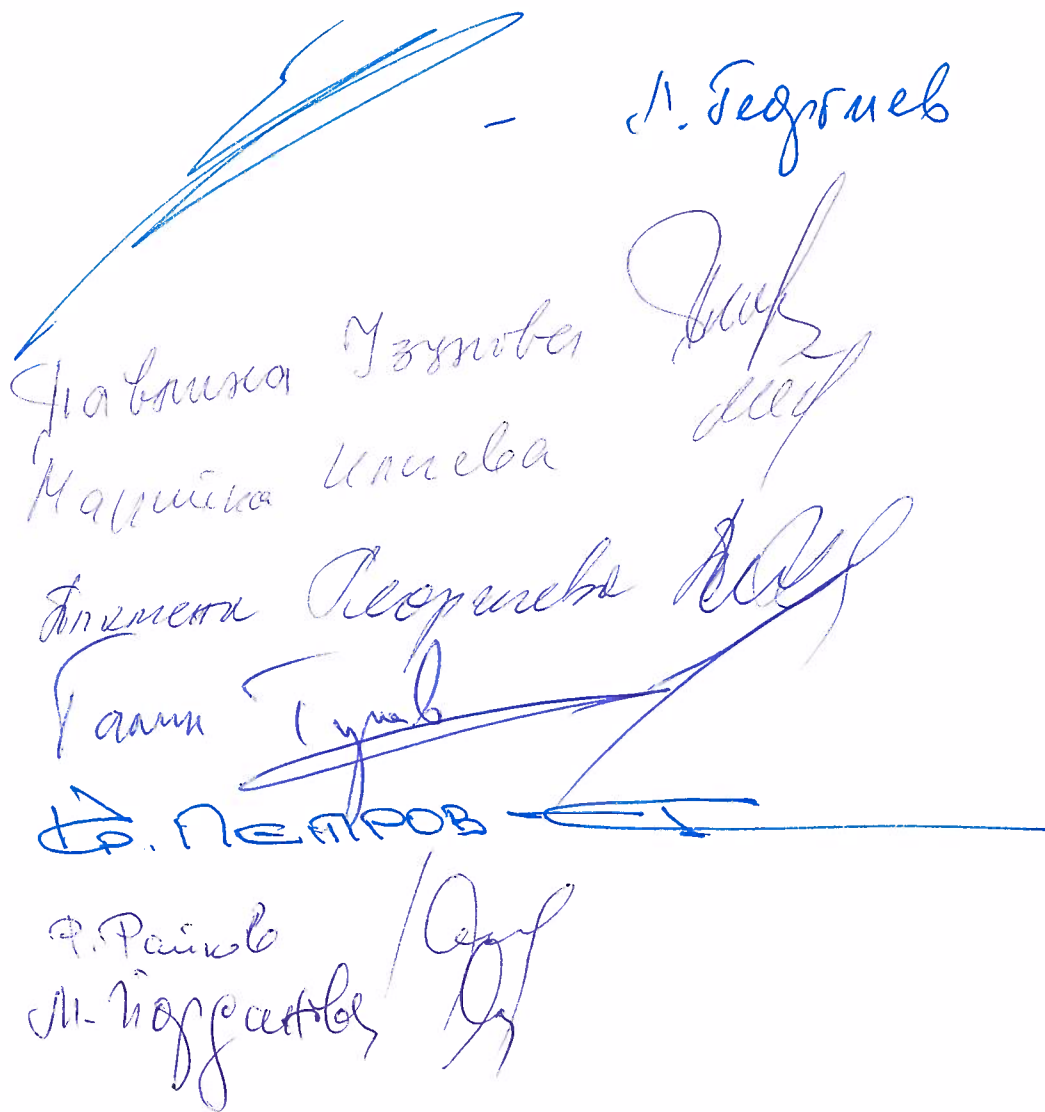 Л. Георгиев
Павлина Узунова
Марийка Илиева
Пламена Георгиева
Галин Гунев
Кр. ПЕТРОВ
Р. Райков
М. Йорданова